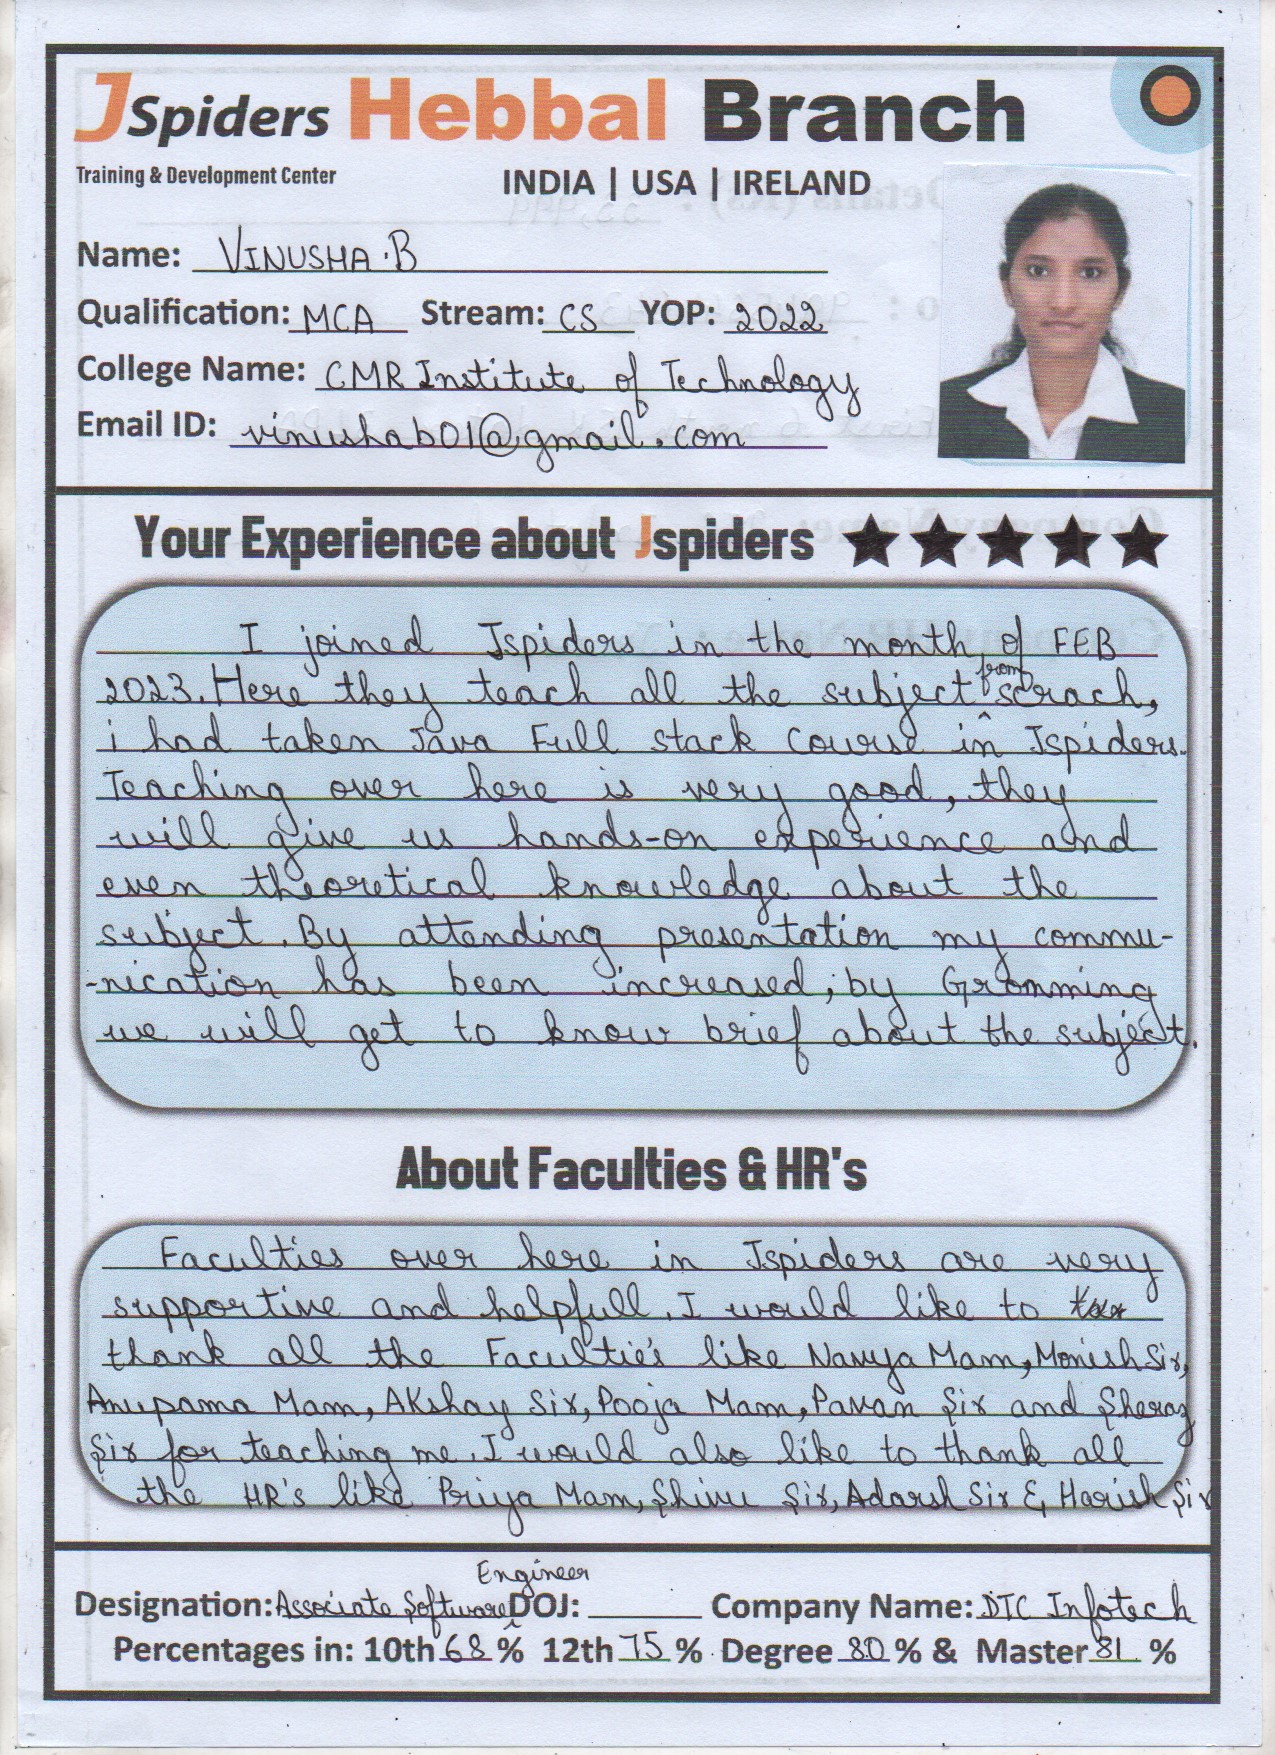 JSpiders Hebbal Branch
Training & Development Center
INDIA | USA | IRELAND
Name: VINUSHA.B
Qualification: MCA Stream: CS YOP: 2022
College Name: CMR Institute of Technology
Email ID: vinushab01@gmail.com
Your Experience about Jspiders ★★★★★
I joined Jspiders in the month of FEB
2023. Here they teach all the subject from scrach,
i had taken Java Full stack Course in Jspiders.
Teaching over here is very good, they
will give us hands-on experience and
even theoretical knowledge about the
subject. By attending presentation my commu-
-nication has been increased, by Gromming
we will get to know brief about the subject.
About Faculties & HR's
Faculties over here in Jspiders are very
supportive and helpfull. I would like to
thank all the Faculties like Navya Mam, Monish Sir,
Anupama Mam, Akshay Sir, Pooja Mam, Pavan Sir and Sheraz
Sir for teaching me. I would also like to thank all
the HR's like Priya Mam, Shivu Sir, Adarsh Sir & Harish Sir
Designation: Associate Software Engineer DOJ: Company Name: DTC Infotech
Percentages in: 10th 68 % 12th 75 % Degree 80 % & Master 81 %